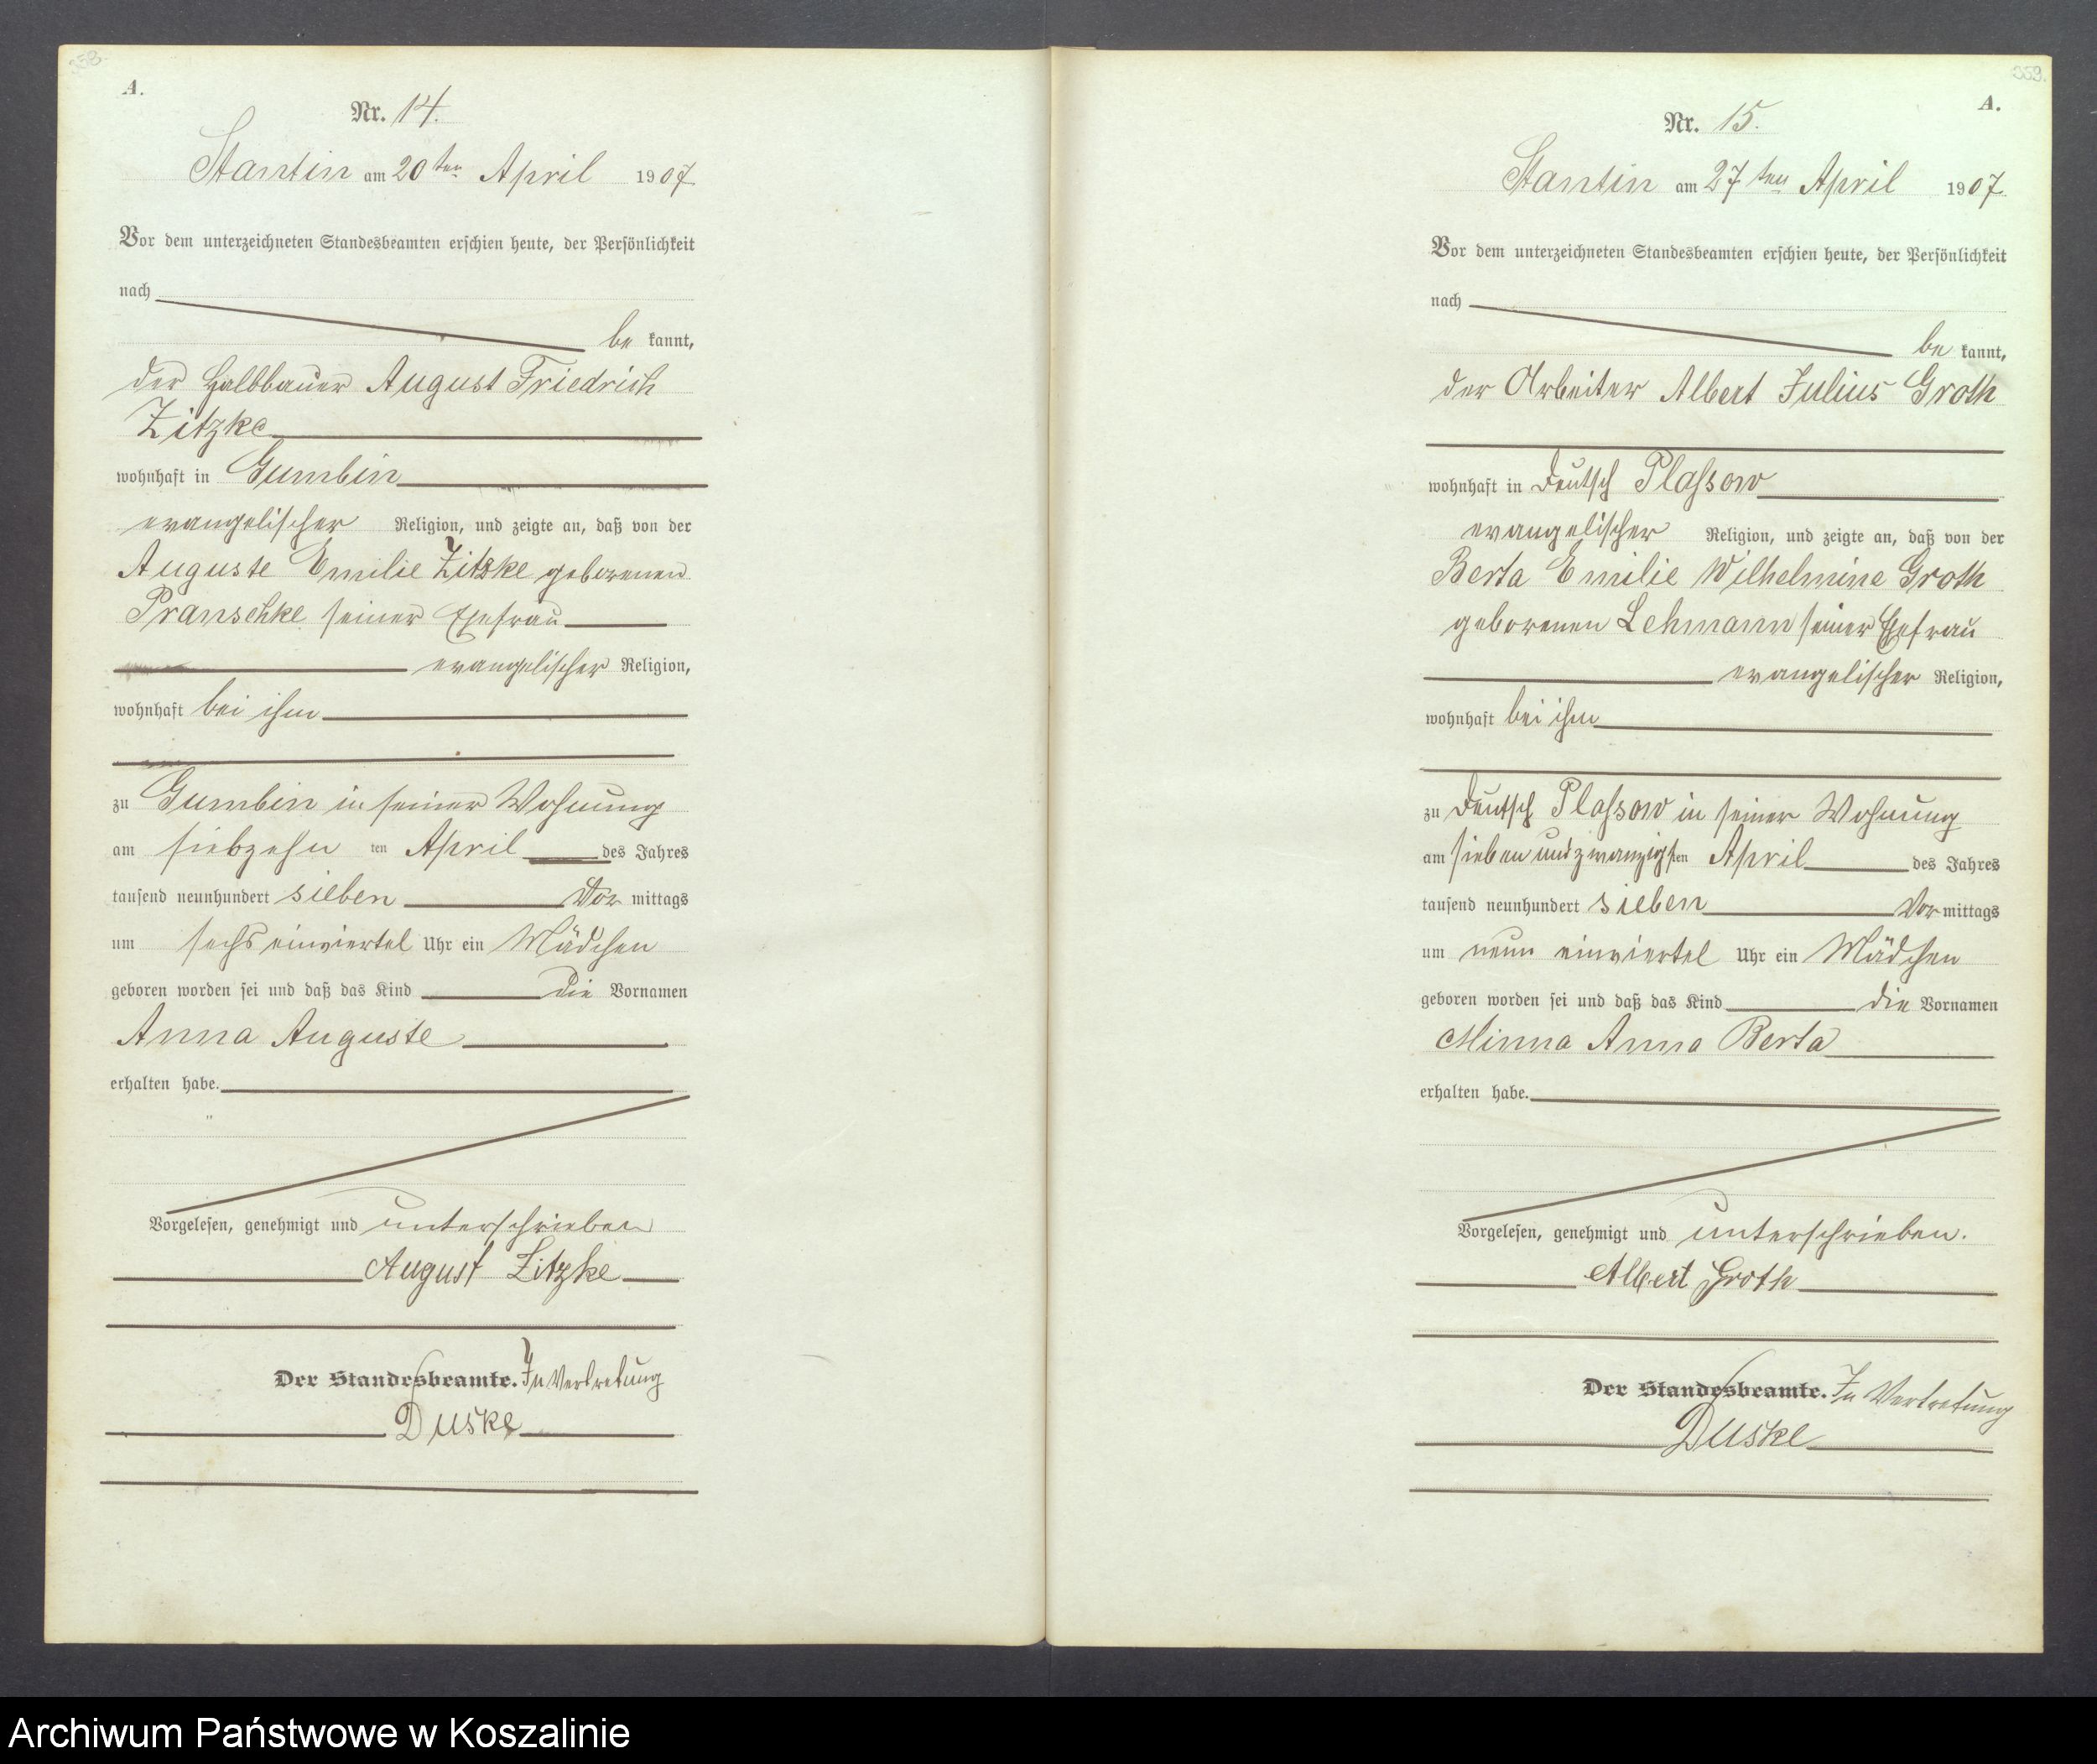 358.
A.
Nr. 14.
Stantin am 20ten April 1907
Vor dem unterzeichneten Standesbeamten erschien heute, der Persönlichkeit
nach
be kannt,
der Halbbauer August Friedrich
Zitzke
wohnhaft in Gumbin
evangelischer Religion, und zeigte an, daß von der
Auguste Emilie Zitzke geborenen
Pranschke seiner Ehefrau
evangelischer Religion,
wohnhaft bei ihm
zu Gumbin in seiner Wohnung
am siebzehn ten April des Jahres
tausend neunhundert sieben Vor mittags
um sechs einviertel Uhr ein Mädchen
geboren worden sei und daß das Kind die Vornamen
Anna Auguste
erhalten habe.
Vorgelesen, genehmigt und unterschrieben
August Zitzke
Der Standesbeamte. In Vertretung
Duske
359.
A.
Nr. 15.
Stantin am 27ten April 1907
Vor dem unterzeichneten Standesbeamten erschien heute, der Persönlichkeit
nach
be kannt,
der Arbeiter Albert Julius Groth
wohnhaft in Deutsch Plassow
evangelischer Religion, und zeigte an, daß von der
Berta Emilie Wilhelmine Groth
geborenen Lehmann seiner Ehefrau
evangelischer Religion,
wohnhaft bei ihm
zu Deutsch Plassow in seiner Wohnung
am siebenundzwanzigsten April des Jahres
tausend neunhundert sieben Vor mittags
um neun einviertel Uhr ein Mädchen
geboren worden sei und daß das Kind die Vornamen
Minna Anna Berta
erhalten habe.
Vorgelesen, genehmigt und unterschrieben.
Albert Groth
Der Standesbeamte. In Vertretung
Duske
Archiwum Państwowe w Koszalinie